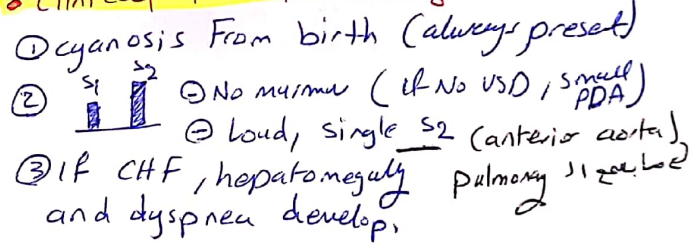 ① cyanosis From birth (always present)
② S1 S2 ⊖ No murmur (if No VSD, small PDA)
⊖ Loud, single S2 (anterior aorta)
③ If CHF, hepatomegaly pulmonary
and dyspnea develop.